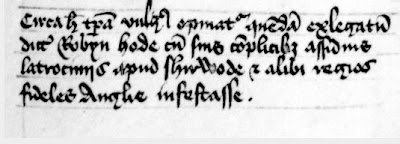 Circa h̄ tp̄a vulg⁹ opinat᷑ quēdā exlegatū
dict̄ Robyn hode cū suis cōplicibȝ assiduis
latrociniis apud shirwode & alibi regios
fideles Anglie infestasse.